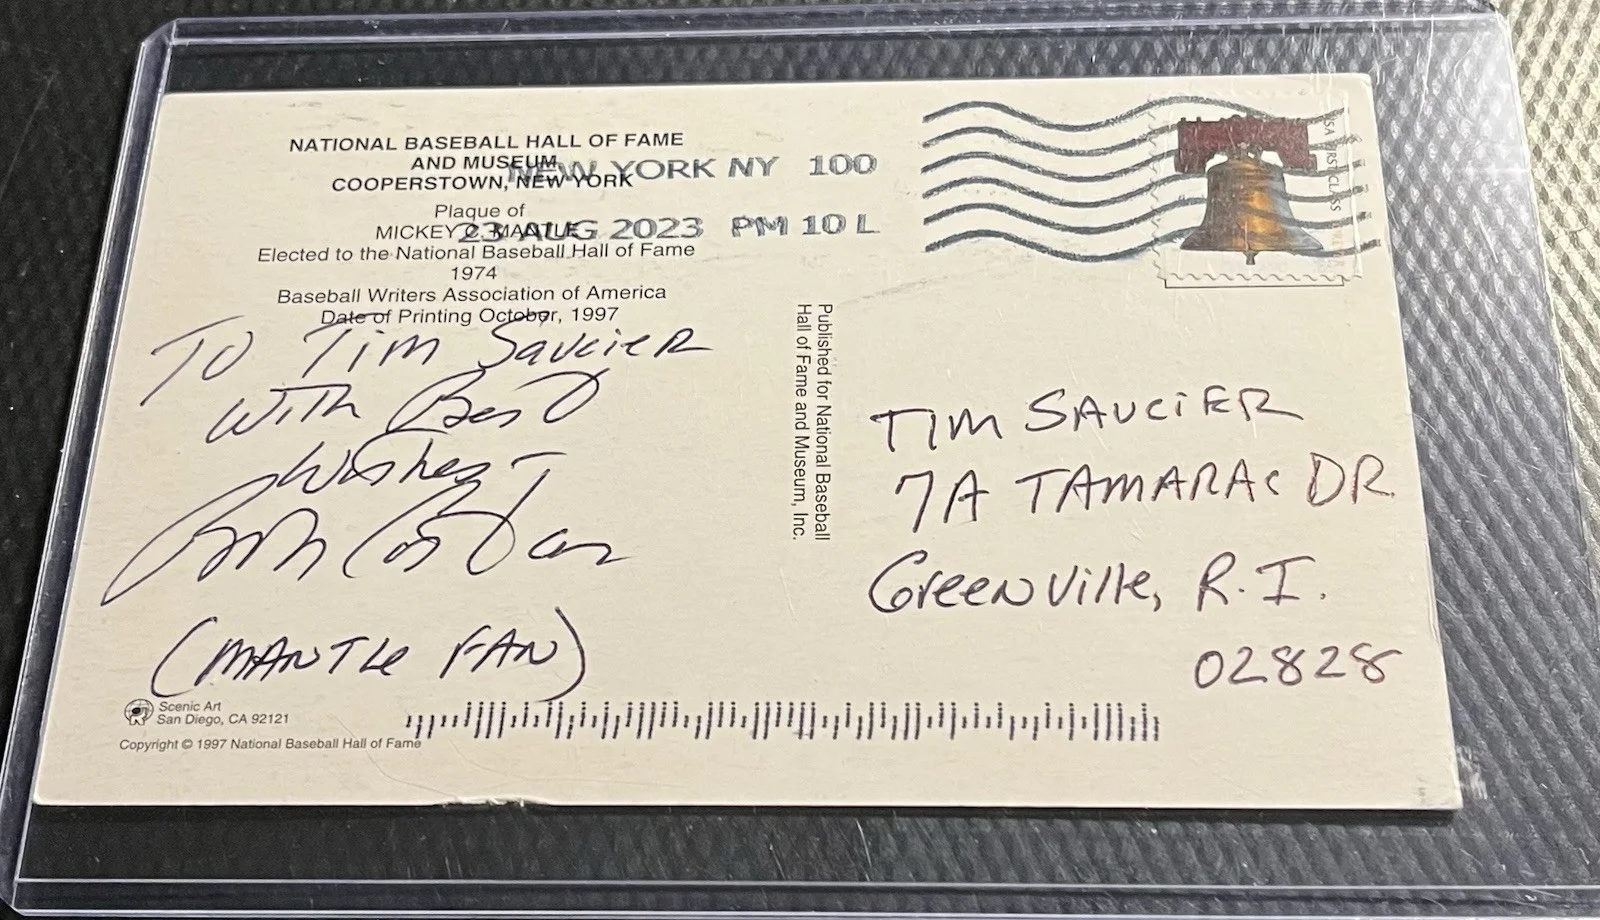 NATIONAL BASEBALL HALL OF FAME
AND MUSEUM
COOPERSTOWN, NEW YORK
Plaque of
MICKEY C. MANTLE
Elected to the National Baseball Hall of Fame
1974
Baseball Writers Association of America
Date of Printing October, 1997
NEW YORK NY 100
23 AUG 2023 PM 10 L
USA FIRST CLASS
To Tim Saucier
with Best
wishes -
Bob Costas
(MANTLE FAN)
Scenic Art
San Diego, CA 92121
Copyright © 1997 National Baseball Hall of Fame
Published for National Baseball
Hall of Fame and Museum, Inc.
TIM SAUCiER
7A TAMARAC DR.
Greenville, R.I.
02828